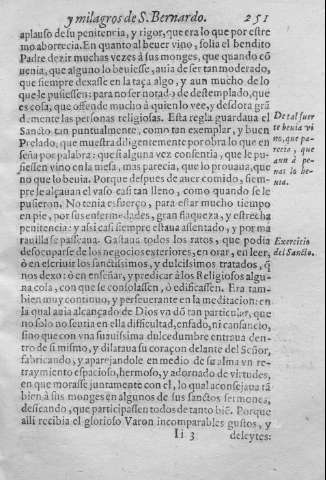 y milagros de S. Bernardo. 251
aplauso de su penitencia, y rigor, que era lo que por estre
mo aborrecia. En quanto al beuer vino, solia el bendito
Padre dezir muchas vezes à sus monges, que quando cõ
uenia, que alguno lo beuiesse, auia de ser tan moderado,
que siempre dexasse en la taça algo, y aun mucho de lo
que le pusiessen: para no ser notado de destemplado, que
es cosa, que offende mucho à quien lo vee, y desdora grã
demente las personas religiosas. Esta regla guardaua el
Sancto tan puntualmente, como tan exemplar, y buen
Prelado, que muestra diligentemente por obra lo que en
seña por palabra: que si alguna vez consentia, que le pu
siessen vino en la mesa, mas parecia, que lo prouaua, que
no que lo beuia. Porque despues de auer comido, siem-
pre le alçauan el vaso casi tan lleno, como quando se le
pusieron. No tenia esfuerço, para estar mucho tiempo
en pie, por sus enfermedades, gran flaqueza, y estrecha
penitencia: y assi casi siempre estaua assentado, y por ma
rauilla se passeaua. Gastaua todos los ratos, que podia
desocuparse de los negocios exteriores, en orar, en leer,
ò en escriuir los sanctissimos, y dulcissimos tratados, q̃
nos dexo: ò en enseñar, y predicar à los Religiosos algu-
na cosa, con que se consolassen, ò edificassen. Era tam-
bien muy continuo, y perseuerante en la meditacion: en
la qual auia alcançado de Dios vn dõ tan particular, que
no solo no sentia en ella difficultad, enfado, ni cansancio,
sino que con vna suauissima dulcedumbre entraua den-
tro de si mismo, y dilataua su coraçon delante del Señor,
fabricando, y aparejandole en medio de su alma vn re-
traymiento espacioso, hermoso, y adornado de virtudes,
en que morasse juntamente con el, lo qual aconsejaua tã
bien à sus monges en algunos de sus sanctos sermones,
desseando, que participassen todos de tanto biẽ. Porque
alli recibia el glorioso Varon incomparables gustos, y
Ii 3 deleytes:
De tal suer
te beuia vi
no, que pa-
recia, que
aun à pe-
nas lo be-
uia.
Exercicio
del Sancto.